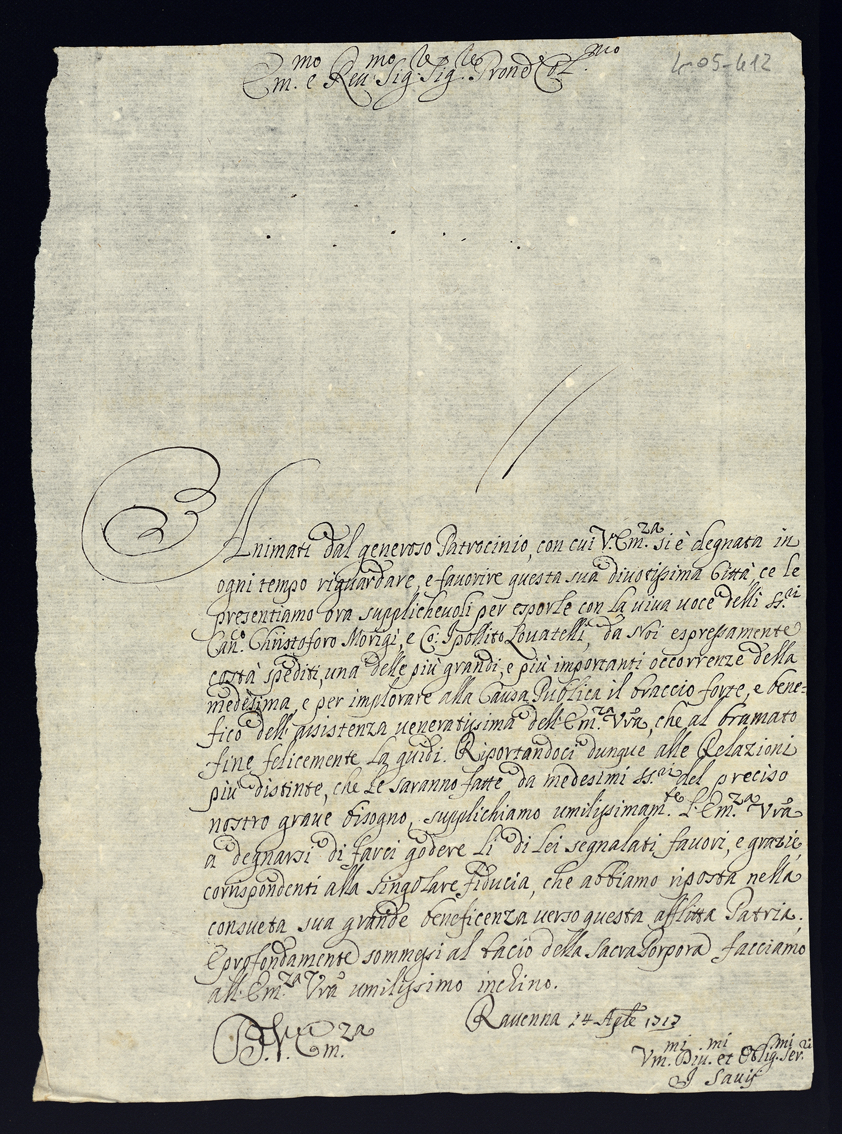 Em.mo e Reu.mo Sig.re Sig.re Prone Col.mo
405-412
Animati dal generoso Patrocinio, con cui V. Em.za si è degnata in
ogni tempo riguardare, e favorire questa sua diuotissima Città, ce le
presentiamo ora supplicheuoli per esporle con la viva voce delli SS.ri
Can.o Christoforo Morigi, e Co: Ipollito Louatelli, da Noi espressamente
costà spediti, una delle più grandi, e più importanti occorrenze della
medesima, e per implorare alla Causa Publica il braccio forte, e bene-
fico dell'assistenza ueneratissima dell'Em.za Vrã, che al bramato
fine felicemente la guidi. Riportandoci dunque alle Relazioni
più distinte, che Le saranno fatte da medesimi SS.ri del preciso
nostro graue bisogno, supplichiamo umilissimam.te L'Em.za Vrã
a degnarsi di farci godere Li di Lei segnalati fauori, e grazie,
corrispondenti alla singolare fiducia, che abbiamo riposta nella
consueta sua grande beneficenza uerso questa afflitta Patria.
E profondamente sommessi al bacio della Sacra Porpora facciamo
all'Em.za Vrã umilissimo inchino.
Rauenna 24 1717
Em.za
Vm.mi Diu.mi et Oblig.mi Ser.ri
J Sauij